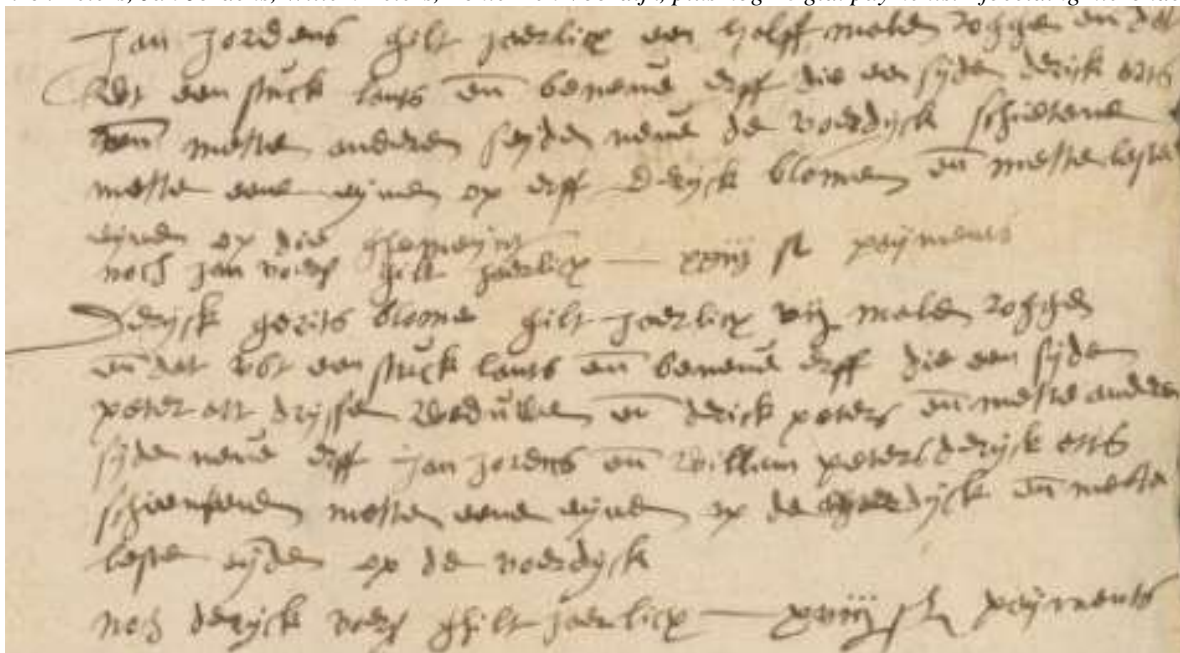 Jan Jordens gilt jaerlicx een halff molen rogge en det
Wt een stuck lants en̄ beneuē erff die een sijden derijck otts
en̄ metten anderen seijden neuē de voerdijck schietene
metten eene eijnden op erff Derijck blomen en̄ metten lesten
eijnden op die ghemeijnt
noch jan voers gilt jaerlicx — xviij st paijments
Derijck gerits blome gilt jaerlicx vij molen roggen
en̄ det vut een stuck lants en̄ beneuē erff die een sijden
peter ott drijssen Weduwe en̄ derick peters en̄ metten anderen
sijden neuē erff jan jordens en̄ Willem peters derijck otts
schietende metten eene eijnden op de dijck en̄ metten
lesten eijnden op de voerdijck
noch derijck voers ghilt jaerlicx — xviij st paijments